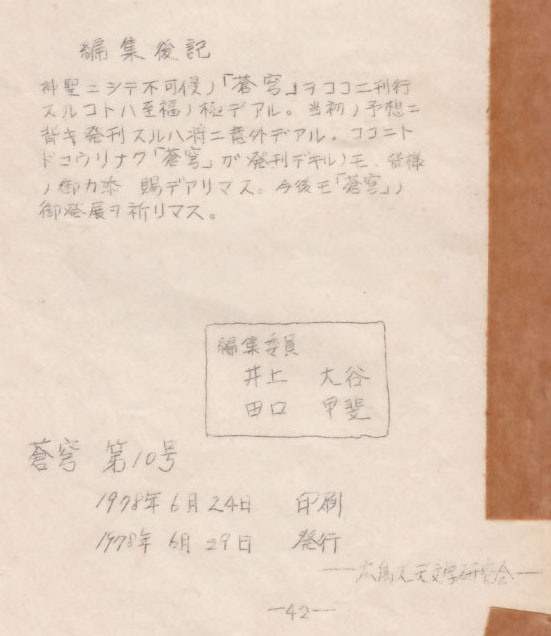 編集後記
神聖ニシテ不可侵ノ「蒼穹」ヲココニ刊行
スルコトハ至福ノ極デアル。当初ノ予想ニ
背キ発刊スルハ将ニ意外デアル。ココニト
ドコウリナク「蒼穹」ガ発刊デキルノモ、皆様
ノ御力添 賜デアリマス。今後モ「蒼穹」ノ
御発展ヲ祈リマス。
編集委員
井上 大谷
田口 甲斐
蒼穹 第10号
1978年6月24日 印刷
1978年6月29日 発行
―広島大天文学研究会―
―42―